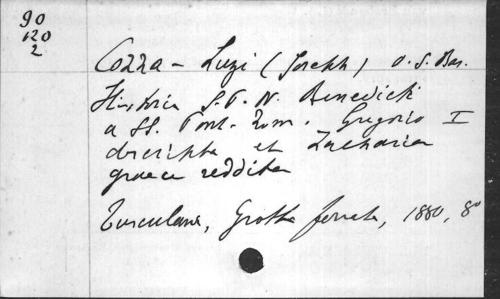 90
120
2
Cozza - Luzi (Joseph) O. S. Bas.
Historia S. P. N. Benedicti
a SS. Pont. Rom. Gregorio I
descripta et Zacharia
graece reddita
Tusculana, Grotta ferrata, 1880, 8º